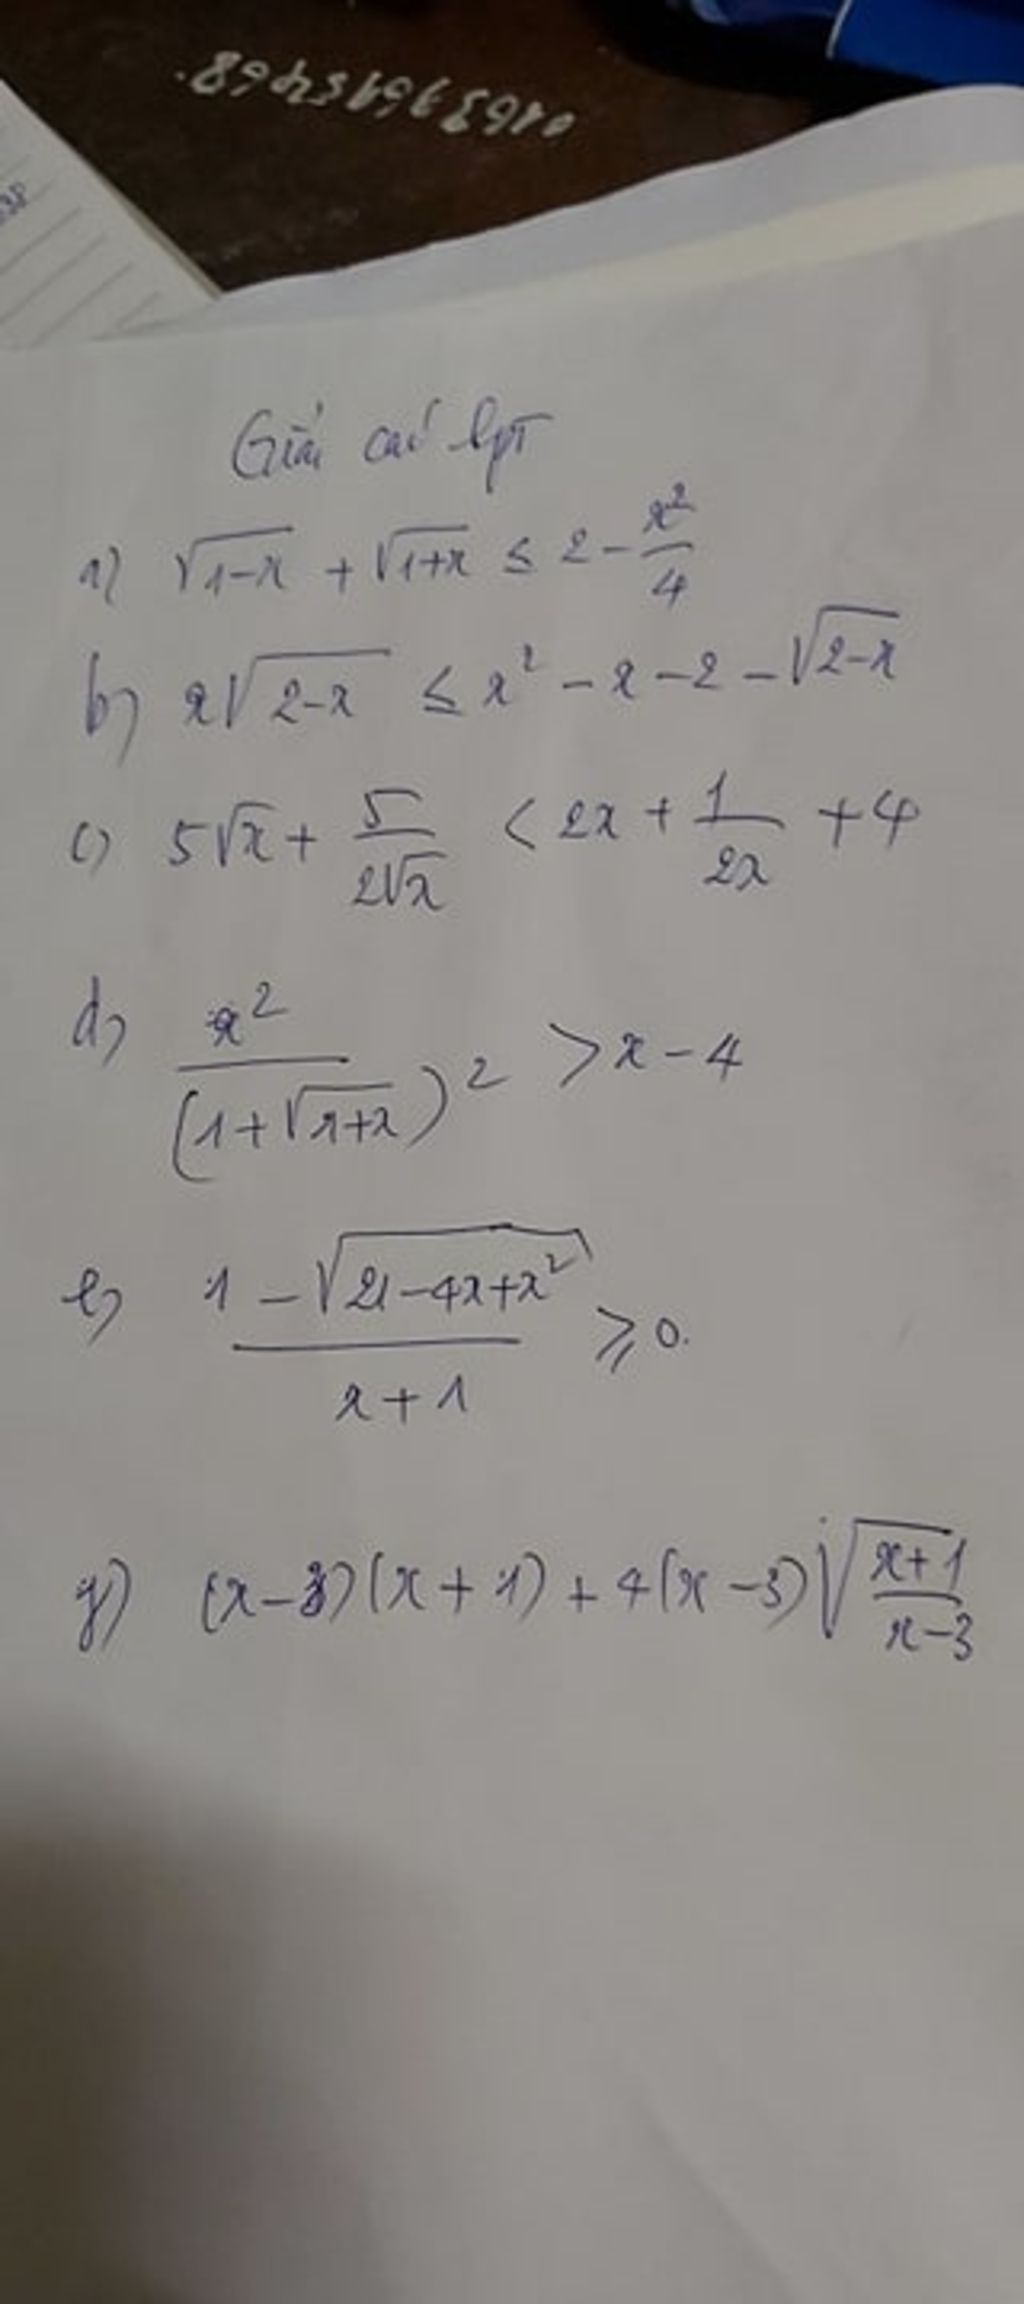 Giải các bpt
a) √(1-x) + √(1+x) ≤ 2 - x²/4
b) x√(2-x) ≤ x² - x - 2 - √(2-x)
c) 5√x + 5/(2√x) < 2x + 1/(2x) + 4
d) x²/(1+√(1+x))² > x - 4
e) (1 - √(21-4x+x²))/(x+1) ≥ 0.
g) (x-3)(x+1) + 4(x-3)√((x+1)/(x-3))